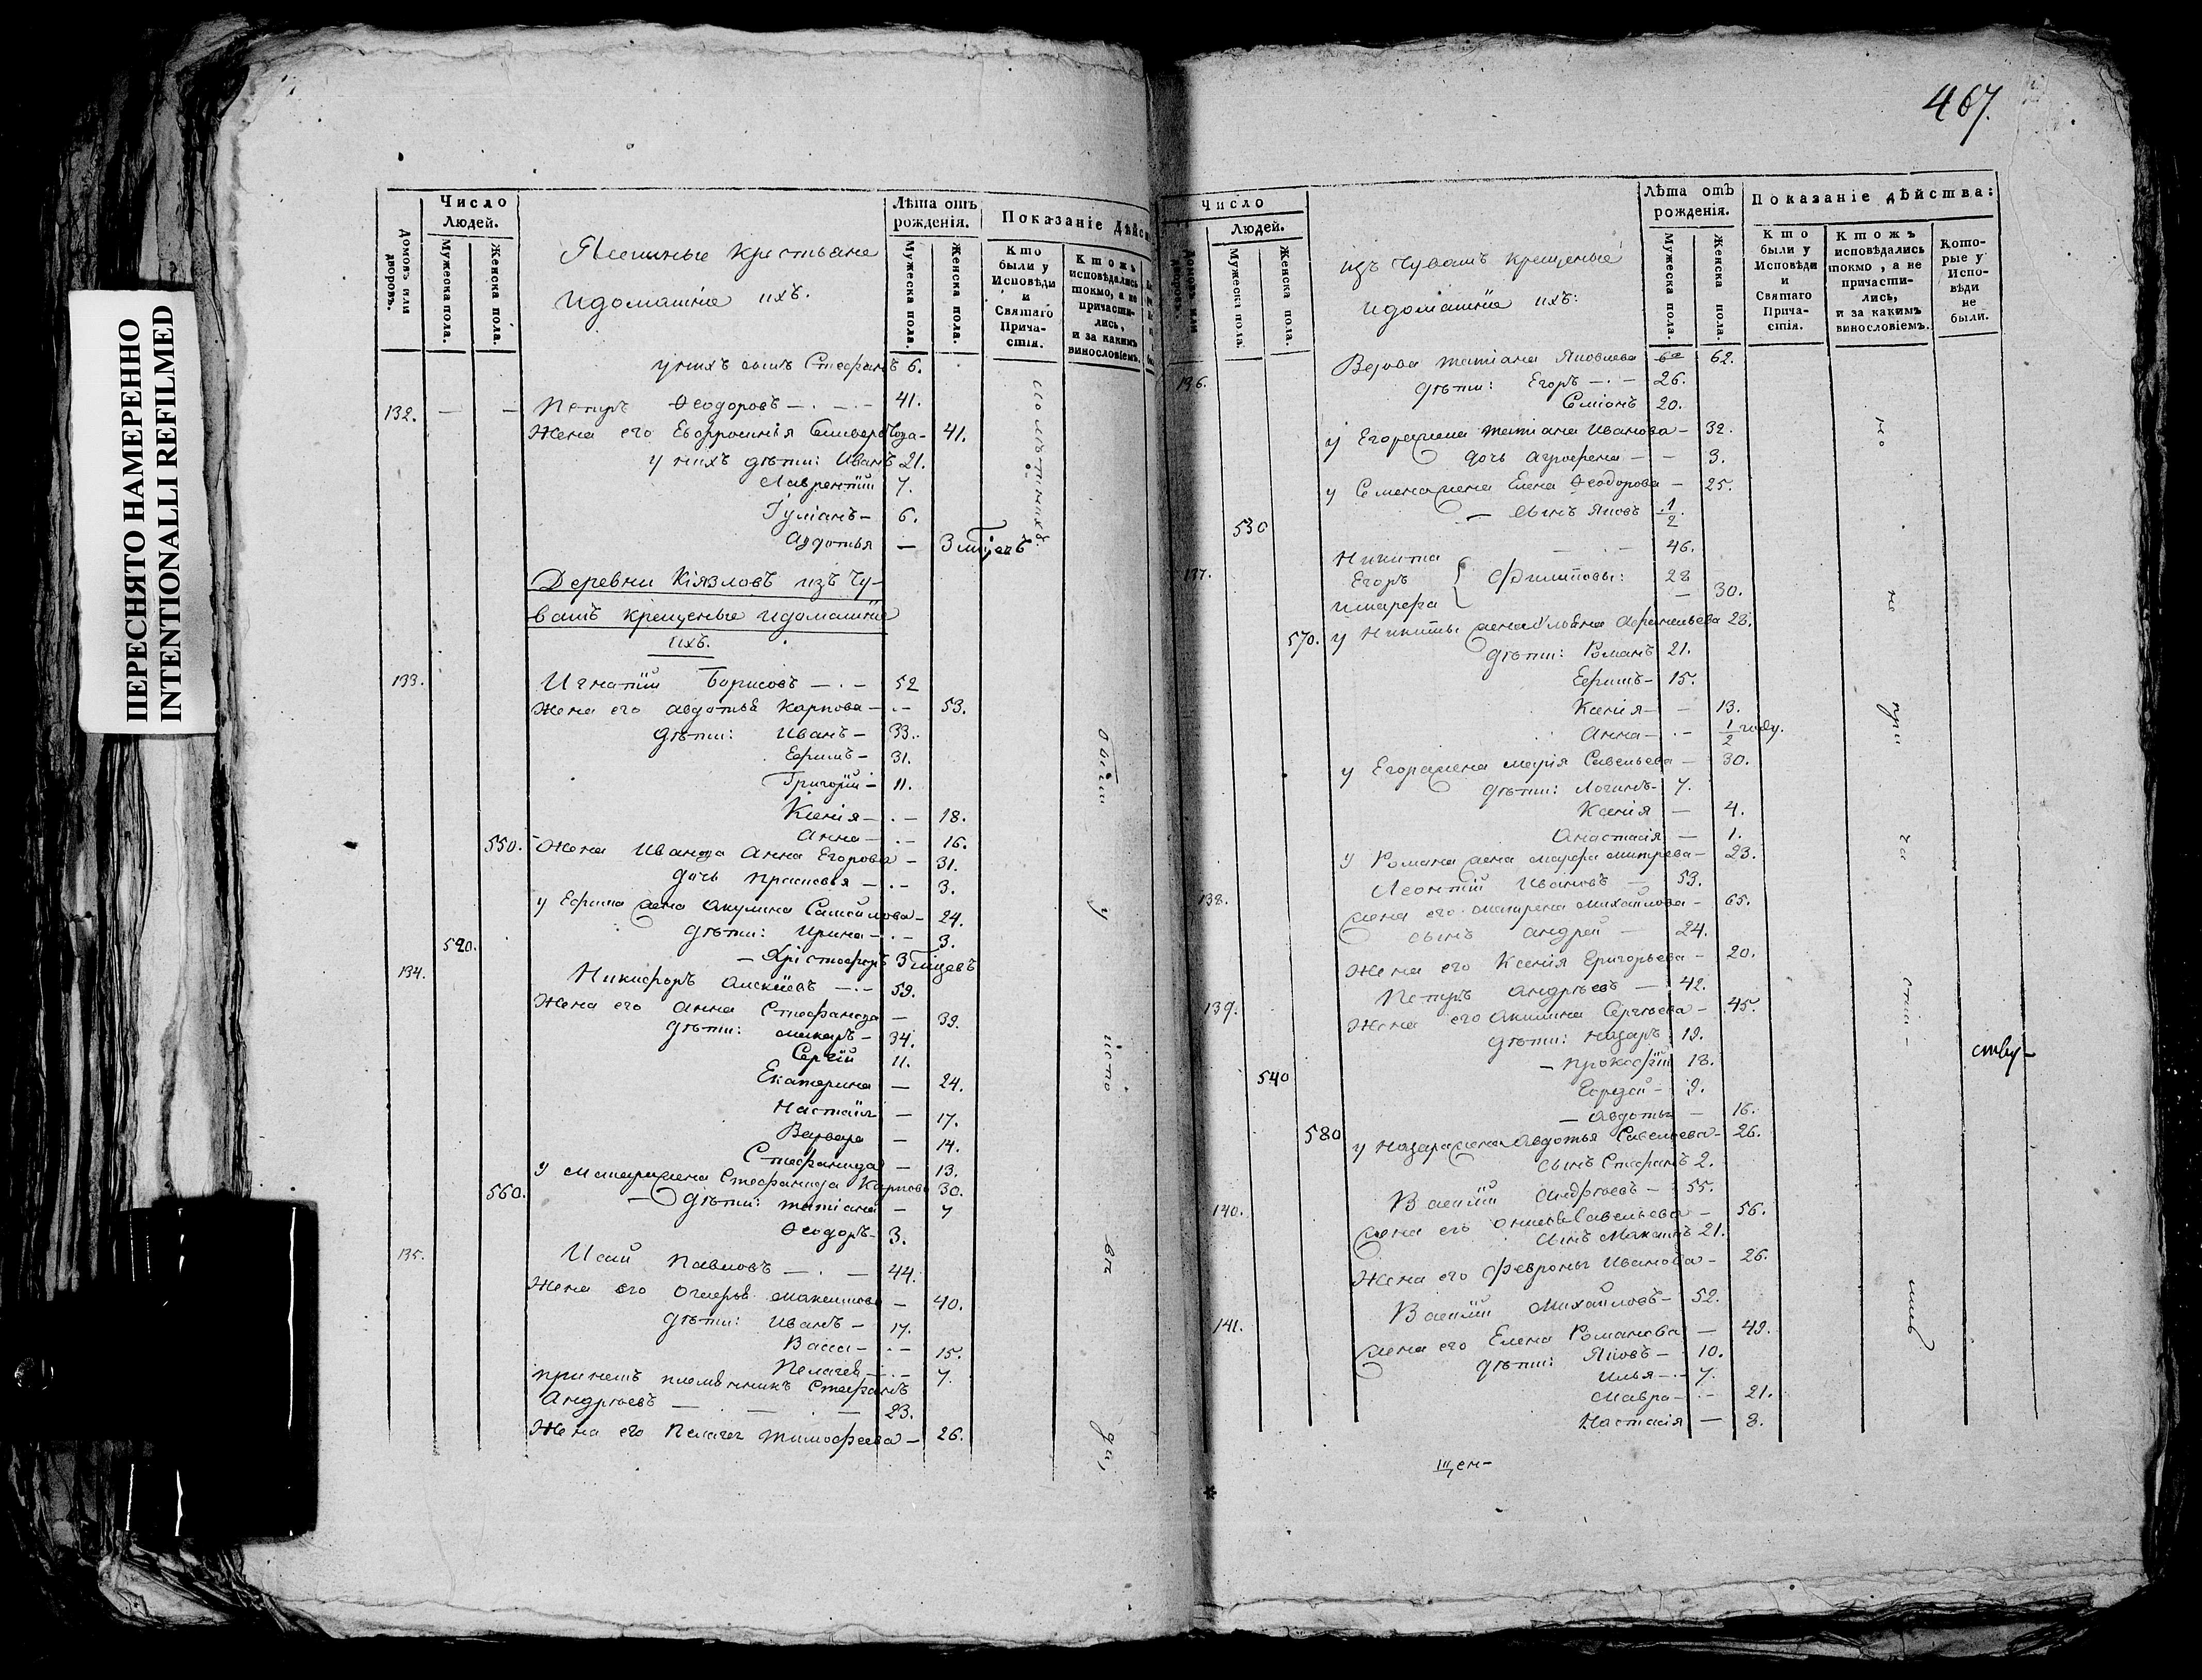 ПЕРЕСНЯТО НАМЕРЕННО
INTENTIONALLI REFILMED
Домовъ или дворовъ.
Число Людей.
Мужеска пола.
Женска пола.
Ясашные крестьяне
идомашние ихъ.
Лѣта отъ рожденія.
Мужеска пола.
Женска пола.
Показаніе Дѣйс
Кто были у Исповѣди и Святаго Причастія.
Ктожъ исповѣдались токмо, а не причастились, и за какимъ винословіемъ.
у нихъ сынъ Стефанъ 6.
132. — — Петръ Ѳеодоровъ — 41.
Жена его Евфросинья — 41.
у нихъ дѣти: Иванъ 21.
Лаврентій 7.
Іуліанъ — 6.
Авдотья — 3
Деревни Кіязловъ изъ Чу-
вашъ крещеные идомашніе
ихъ.
133. Игнатій Борисовъ — 52
Жена его Авдотья Карпова — 53.
дѣти: Иванъ — 33.
Ефимъ — 31.
Григорій — 11.
Ксенія — 18.
Анна — 16.
550. Жена Ивана Анна Егорова — 31.
дочь Прасковья — 3.
у Ефима жена Акулина Самойлова — 24.
дѣти: Ирина — 3.
520. — Христофоръ 3
134. Никифоръ Алексіевъ — 59.
Жена его Анна Стефанова — 39.
дѣти: Макаръ — 34.
Сергій 11.
Екатерина — 24.
Настасія — 17.
Варвара — 14.
Стефанида — 13.
у Макара жена Стефанида Карпова 30.
560. — дѣти: Татіана — 7
Ѳеодоръ — 3.
135. Исай Павловъ — 44.
Жена его Максимова — 40.
дѣти: Иванъ — 17.
Васса — 15.
Пелагея — 7.
при немъ племянникъ Стефанъ
Андреевъ — 23.
Жена его Пелагея Тимофеева — 26.
467.
Домовъ или дворовъ.
Число Людей.
Мужеска пола.
Женска пола.
изъ Чувашъ крещеные
идомашніе ихъ:
Лѣта отъ рожденія.
Мужеска пола.
Женска пола.
Показаніе дѣйства:
Кто были у Исповѣди и Святаго Причастія.
Ктожъ исповѣдались токмо, а не причастились, и за какимъ винословіемъ.
Которые у Исповѣди не были.
136. Вдова Татіана Яковлева 62.
дѣти: Егоръ — 26.
Семіонъ 20.
у Егора жена Татіана Иванова — 32.
дочь Агрофена — — 3.
у Семена жена Елена Ѳеодорова — 25.
530 — сынъ Яковъ 1/2
137. Никита — 46.
Егоръ Филиповы: 28
и Марфа — 30.
570. у Никиты жена Ульяна 28.
дѣти: Романъ 21.
Ефимъ — 15.
Ксенія — — 13.
Анна — — 1/2 году.
у Егора жена Марія Савельева — 30.
дѣти: Логинъ — 7.
Ксенія — 4.
Анастасія — 1.
у Романа жена Марфа Митрева — 23.
138. Леонтій Ивановъ — 53.
жена его Матрена Михайлова — 65.
сынъ Андрей — 24.
Жена его Ксенія Григорьева — 20.
139. Петръ Андреевъ — 42.
Жена его Акилина Сергіева — 45.
дѣти: Назаръ 19.
— Прокофій 18.
540 9.
— Авдотья — 16.
580 у Назара жена Авдотья Савельева — 26.
сынъ Стефанъ 2.
140. Василій Андреевъ — 55.
жена его Савельева — 56.
сынъ Максимъ 21.
Жена его Февронья Иванова — 26.
141. Василій Михайловъ — 52.
жена его Елена Романова — 49.
дѣти: Яковъ — 10.
Илья — 7.
Мавра — 21.
Настасія — 8.